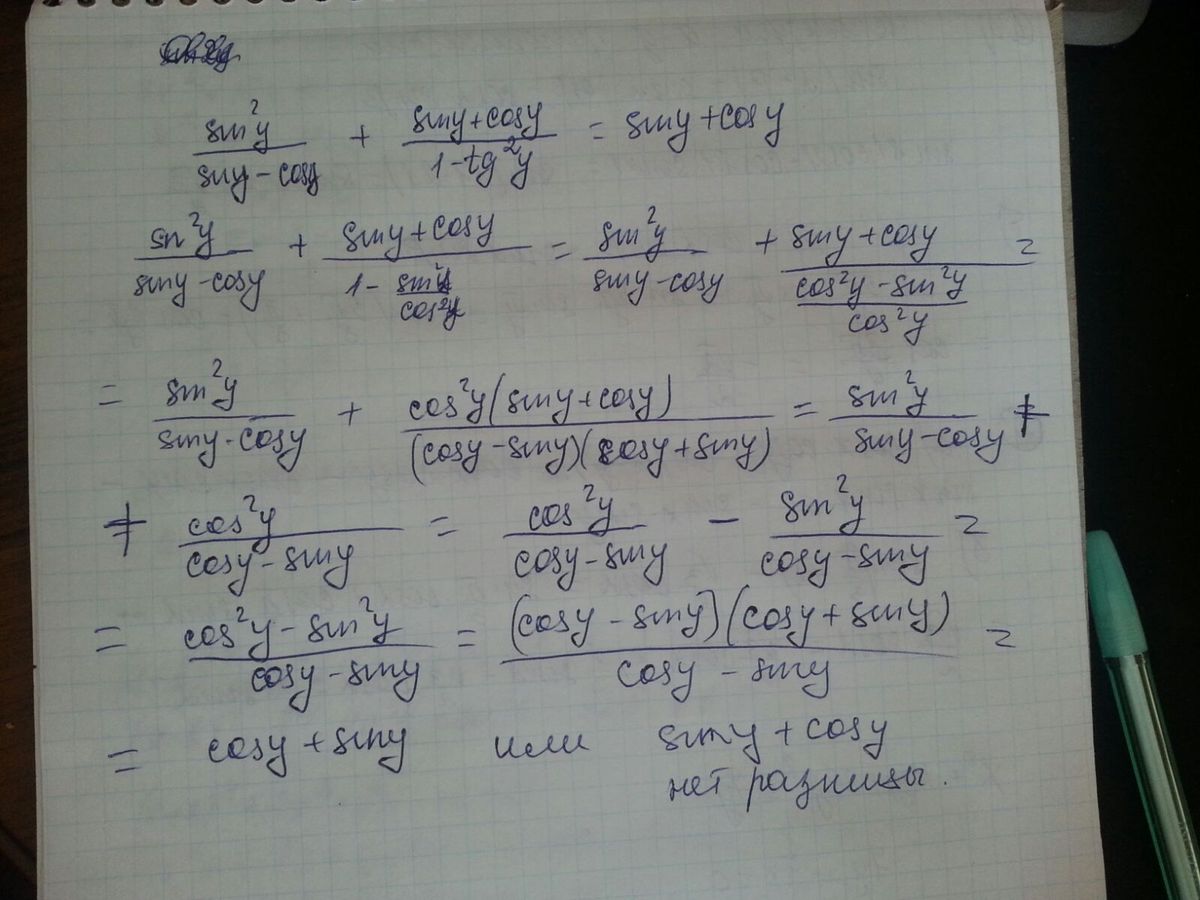 sin²y/(siny - cosy) + (siny + cosy)/(1 - tg²y) = siny + cosy
sn²y/(siny - cosy) + (siny + cosy)/(1 - sin²y/cos²y) = sin²y/(siny - cosy) + (siny + cosy)/((cos²y - sin²y)/cos²y) =
= sin²y/(siny - cosy) + cos²y(siny + cosy)/((cosy - siny)(cosy + siny)) = sin²y/(siny - cosy) +
+ cos²y/(cosy - siny) = cos²y/(cosy - siny) - sin²y/(cosy - siny) =
= (cos²y - sin²y)/(cosy - siny) = (cosy - siny)(cosy + siny)/(cosy - siny) =
= cosy + siny или siny + cosy
нет разницы.